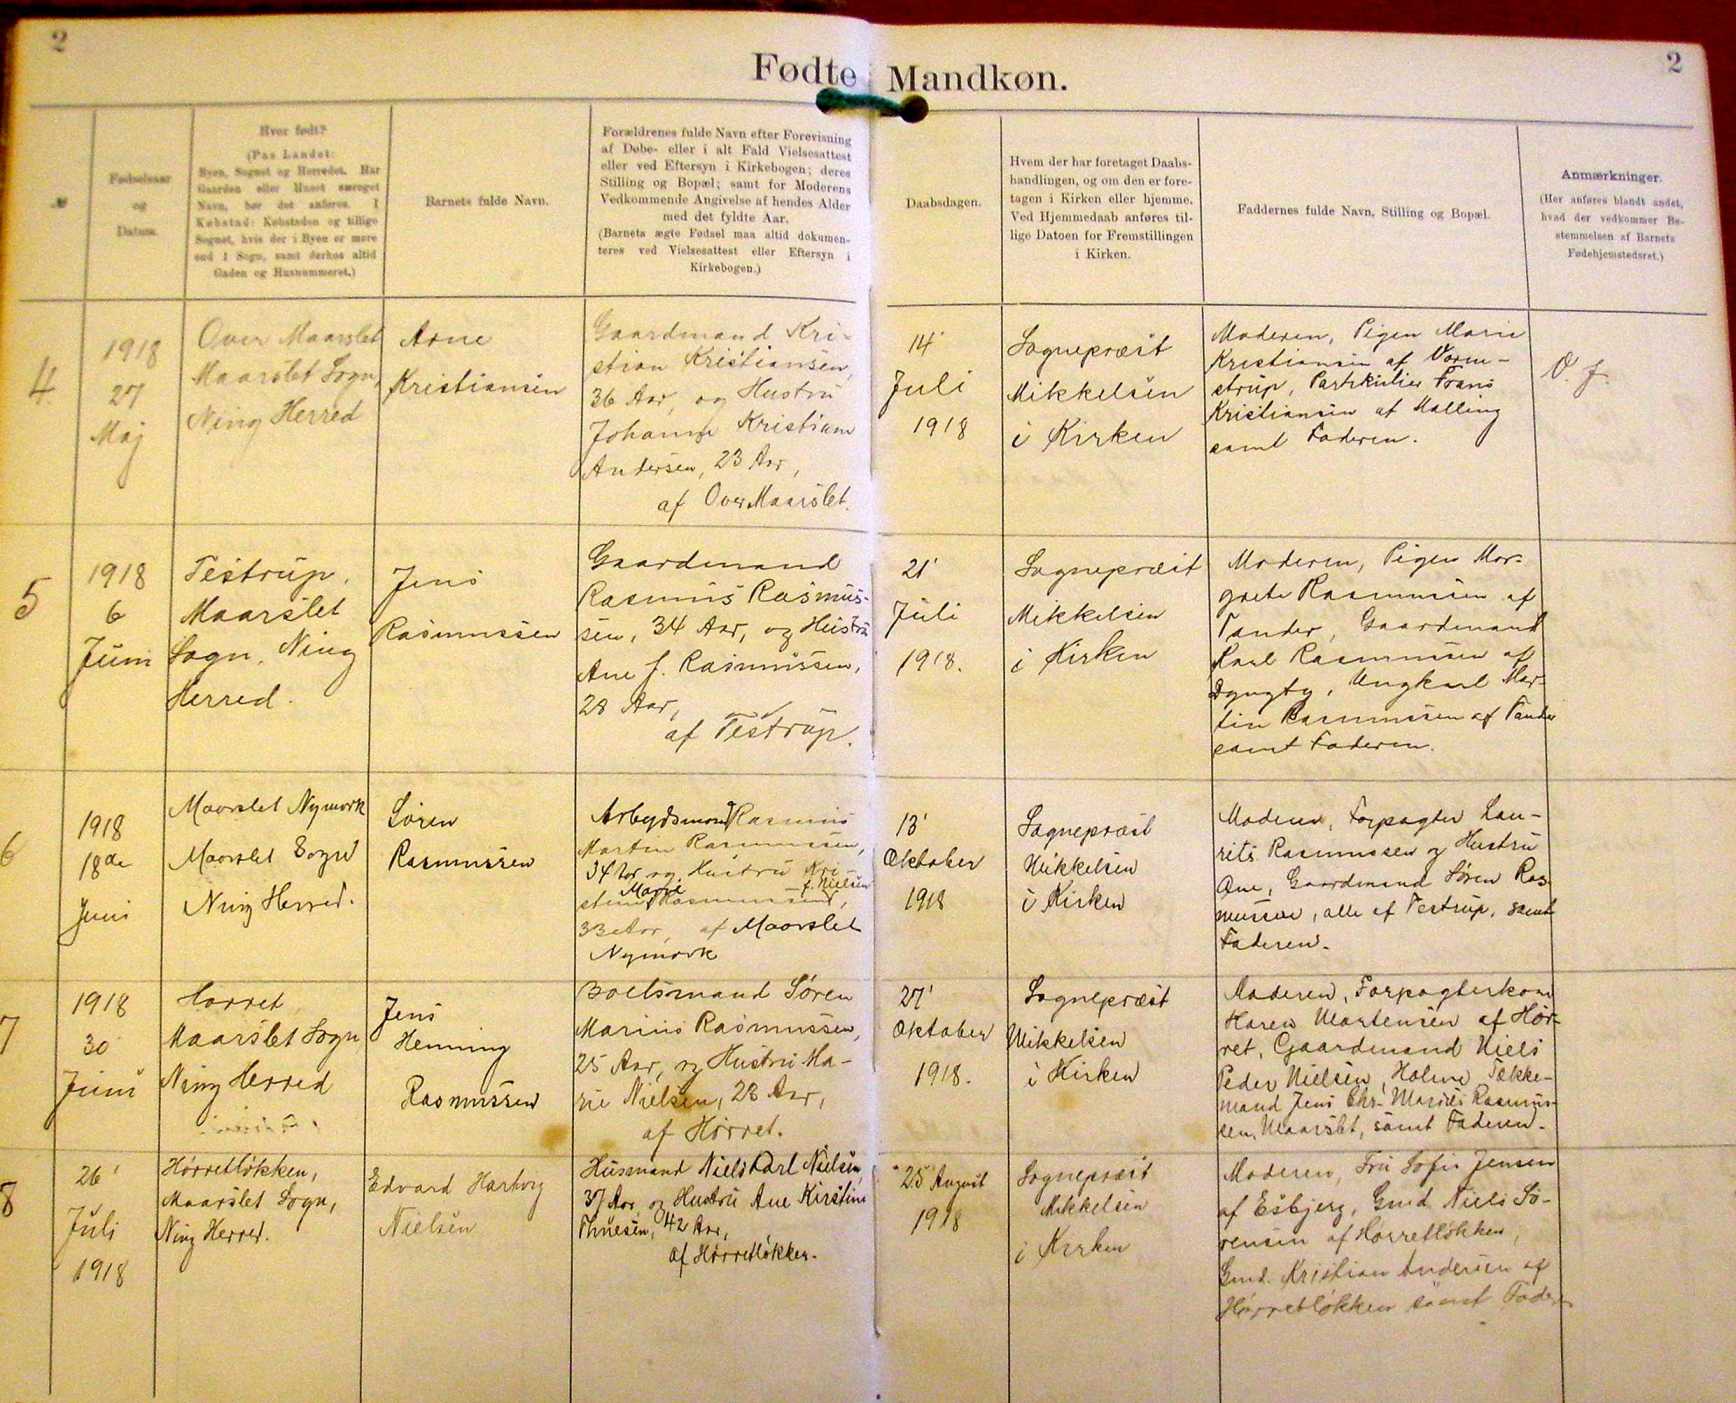 2
2
Fødte Mandkøn.
№
Fødselsaar
og
Datum.
Hvor født?
(Paa Landet:
Byen, Sognet og Herredet. Har
Gaarden eller Huset særeget
Navn, bør det anføres. I
Købstad: Købstaden og tillige
Sognet, hvis der i Byen er mere
end 1 Sogn, samt derhos altid
Gaden og Husnummeret.)
Barnets fulde Navn.
Forældrenes fulde Navn efter Forevisning
af Døbe- eller i alt Fald Vielsesattest
eller ved Eftersyn i Kirkebogen; deres
Stilling og Bopæl; samt for Moderens
Vedkommende Angivelse af hendes Alder
med det fyldte Aar.
(Barnets ægte Fødsel maa altid dokumen-
teres ved Vielsesattest eller Eftersyn i
Kirkebogen.)
Daabsdagen.
Hvem der har foretaget Daabs-
handlingen, og om den er fore-
tagen i Kirken eller hjemme.
Ved Hjemmedaab anføres til-
lige Datoen for Fremstillingen
i Kirken.
Faddernes fulde Navn, Stilling og Bopæl.
Anmærkninger.
(Her anføres blandt andet,
hvad der vedkommer Be-
stemmelsen af Barnets
Fødehjemstedsret.)
4
1918
27
Maj
Over Maarslet
Maarslet Sogn,
Ning Herred
Arne
Kristiansen
Gaardmand Kri-
stian Kristiansen,
36 Aar, og Hustru
Johanne Kristiane
Andersen, 23 Aar,
af Over Maarslet.
14'
Juli
1918
Sognepræst
Mikkelsen
i Kirken
Moderen, Pigen Marie
Kristiansen af Norm-
strup, Partikulier Frans
Kristiansen af Malling
samt Faderen.
O. f.
5
1918
6
Juni
Testrup,
Maarslet
Sogn, Ning
Herred.
Jens
Rasmussen
Gaardmand
Rasmus Rasmus-
sen, 34 Aar, og Hustru
Ane f. Rasmussen,
28 Aar,
af Testrup.
21'
Juli
1918.
Sognepræst
Mikkelsen
i Kirken
Moderen, Pigen Mar-
grete Rasmussen af
Tander, Gaardmand
Karl Rasmussen af
Dyngby, Ungkarl Mar-
tin Rasmussen af Tander
samt Faderen.
6
1918
18de
Juni
Maarslet Nymark
Maarslet Sogn
Ning Herred.
Søren
Rasmussen
Arbejdsmand Rasmus
Morten Rasmussen,
34 Aar og Hustru Kri-
stine Marie Rasmussen f. Nielsen,
33 Aar, af Maarslet
Nymark
13'
Oktober
1918
Sognepræst
Mikkelsen
i Kirken
Moderen, Forpagter Lau-
rits Rasmussen og Hustru
Ane, Gaardmand Søren Ras-
mussen, alle af Testrup, samt
Faderen.
7
1918
30
Juni
Hørret
Maarslet Sogn
Ning Herred
Jens
Henning
Rasmussen
Boelsmand Søren
Marius Rasmussen,
25 Aar, og Hustru Ma-
rie Nielsen, 28 Aar,
af Hørret.
27'
Oktober
1918.
Sognepræst
Mikkelsen
i Kirken
Moderen, Forpagterkone
Maren Mortensen af Hør-
ret, Gaardmand Niels
Peder Nielsen, Holme, Tække-
mand Jens Chr. Marius Rasmus-
sen, Maarslet, samt Faderen.
8
26'
Juli
1918
Hørretløkken,
Maarslet Sogn,
Ning Herred.
Edvard Hartvig
Nielsen
Husmand Niels Karl Nielsen,
37 Aar, og Hustru Ane Kirstine
Thuesen, 42 Aar,
af Hørretløkken.
25 August
1918
Sognepræst
Mikkelsen
i Kirken
Moderen, Fru Sofie Jensen
af Esbjerg, Gmd. Niels Sø-
rensen af Hørretløkken,
Gmd. Kristian Andersen af
Hørretløkken samt Faderen